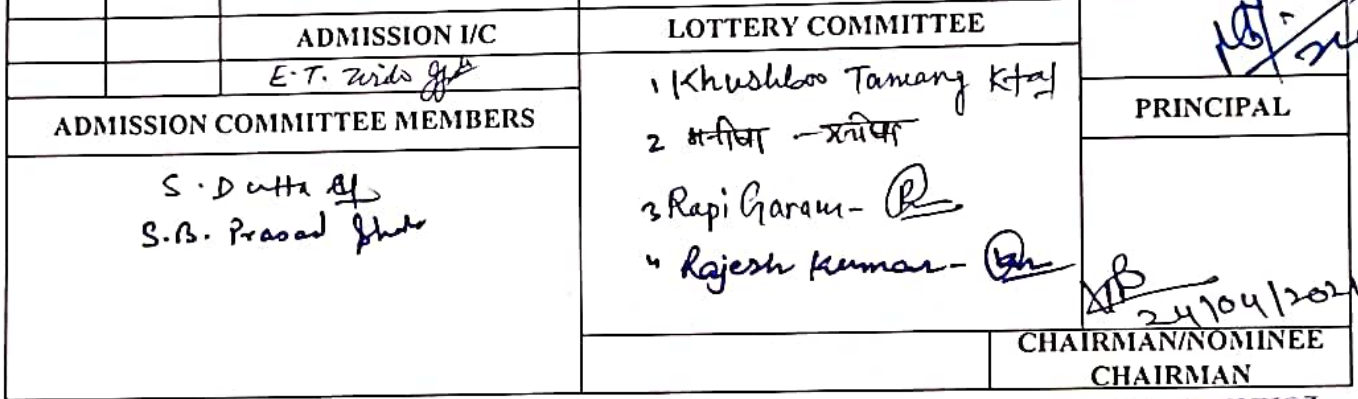 ADMISSION I/C
E.T.
ADMISSION COMMITTEE MEMBERS
S. Dutta
S.B. Prasad
LOTTERY COMMITTEE
1 Khushboo Tamang
2 मनीषा - मनीषा
3 Rapi Garam -
4 Rajesh Kumar -
PRINCIPAL
24/04/202
CHAIRMAN/NOMINEE
CHAIRMAN